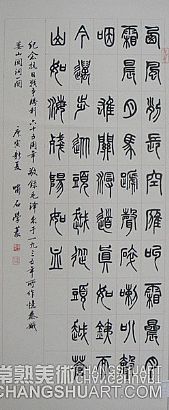 西風烈長空雁叫霜晨月
霜晨月馬蹄聲碎喇叭聲
咽雄關漫道真如鐵而
今邁步從頭越從頭越蒼
山如海殘陽如血
紀念抗日戰爭勝利六十五周年敬錄毛澤東于一九三五年所作憶秦娥
婁山關詞一闋
庚寅新夏
常熟美術